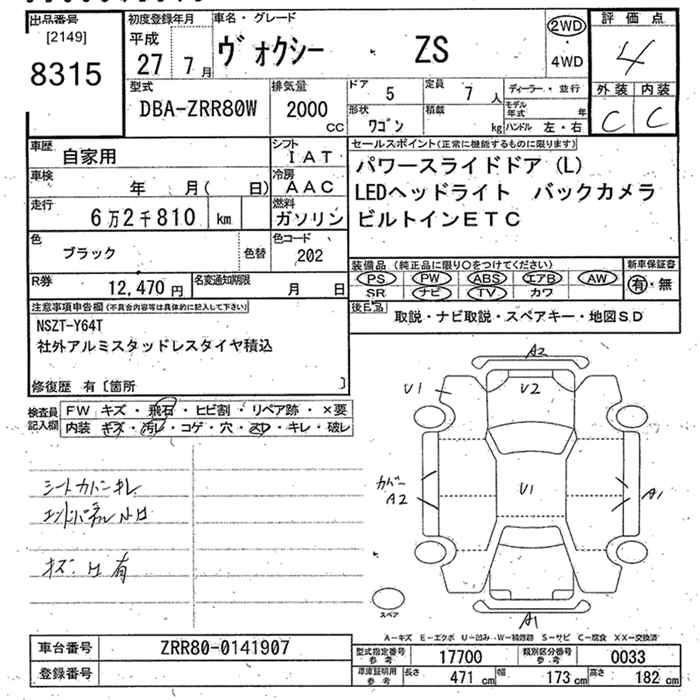 出品番号 初度登録年月 車名・グレード 2WD 評価点
[2149] 平成 ヴォクシー ZS 4WD 4
8315 27 7月
型式 排気量 ドア 5 定員 7人 ディーラー・並行 外装 内装
DBA-ZRR80W 2000cc 形状 ワゴン 積載 kg モデル年式 年 C C
ハンドル 左・右
車歴 自家用 シフト IAT セールスポイント(正常に機能するものに限ります)
車検 年 月( 日) 冷房 AAC パワースライドドア (L)
走行 6万2千810 km 燃料 ガソリン LEDヘッドライト バックカメラ
ビルトインETC
色 ブラック 色替 色コード 202
装備品 (純正品に限り○をつけてください) 新車保証書
R券 12,470円 名変通知期限 月 日 PS PW ABS エアB AW 有・無
SR ナビ TV カワ
注意事項申告欄(不具合内容等は具体的に記入して下さい) 後日品 取説・ナビ取説・スペアキー・地図SD
NSZT-Y64T
社外アルミスタッドレスタイヤ積込
修復歴 有〔箇所 〕
検査員記入欄 FW キズ・飛石・ヒビ割・リペア跡・×要
内装 キズ・汚レ・コゲ・穴・スレ・キレ・破レ
シートカバーキレ
キズ・凹有
A2
U1 U2
カバーA2 U1 A1
スペア A1
A-キズ E-エクボ U-凹み W-補修跡 S-サビ C-腐食 XX-交換済
車台番号 ZRR80-0141907 型式指定番号参考 17700 類別区分番号参考 0033
登録番号 車庫証明用参考 長さ 471cm 幅 173cm 高さ 182cm